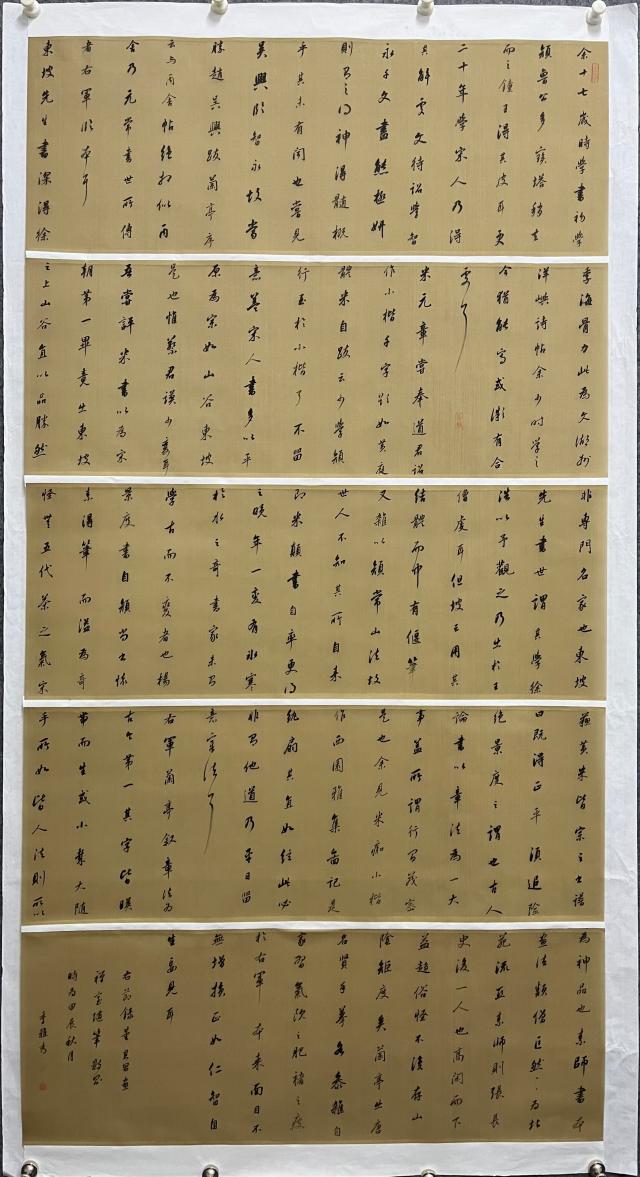 余十七歲時學書初學
顏魯公多寶塔稍去
而之鍾王得其皮耳更
二十年學宋人乃得
其解處文待詔學智
永千文盡態極妍
則有之得神得髓概
乎其未有聞也嘗見
吳興臨智永故當
勝趙吳興跋蘭亭序
云與丙舍帖絕相似丙
舍乃元常書世所傳
者右軍臨本耳
東坡先生書深得徐
季海骨力此為文湖州
洋嶼詩帖余少時學之
今猶能寫或漸有合
處耳
米元章嘗奉道君詔
作小楷千字欲如黃庭
體米自跋云少學顏
行至於小楷了不留
意蓋宋人書多以平
原為宗如山谷東坡
是也惟蔡君謨少變耳
吾嘗評米書以為宋
朝第一畢竟出東坡
之上山谷直以品勝然
非專門名家也東坡
先生書世謂其學徐
浩以予觀之乃出於王
僧虔耳但坡云用其
結體而中有偃筆
又雜以顏常山法故
世人不知其所自來
即米顛書自率更得
之晚年一變有冰寒
於水之奇書家未有
學古而不變者也楊
景度書自顏尚書懷
素得筆而溢為奇
怪無五代茶之氣宋
蘇黃米皆宗之書譜
曰既得正平須追險
絕景度之謂也古人
論書以章法為一大
事蓋所謂行間茂密
是也余見米癡小楷
作西園雅集圖記是
紈扇其直如弦此必
非有他道乃平日留
意章法耳
右軍蘭亭敘章法為
古今第一其字皆映
帶而生或小或大隨
手所如皆入法則所以
為神品也素師書本
畫法類僧巨然巨然為北
苑流亞素師則張長
史後一人也高閑而下
益趨俗怪不復存山
陰矩度矣蘭亭出唐
名賢手摹各參雜自
家習氣歐之肥褚之瘦
於右軍本來面目不
無增損正如仁智自
生妄見耳
右節錄董其昌畫
禪室隨筆數則
時為甲辰秋月
李雅秀